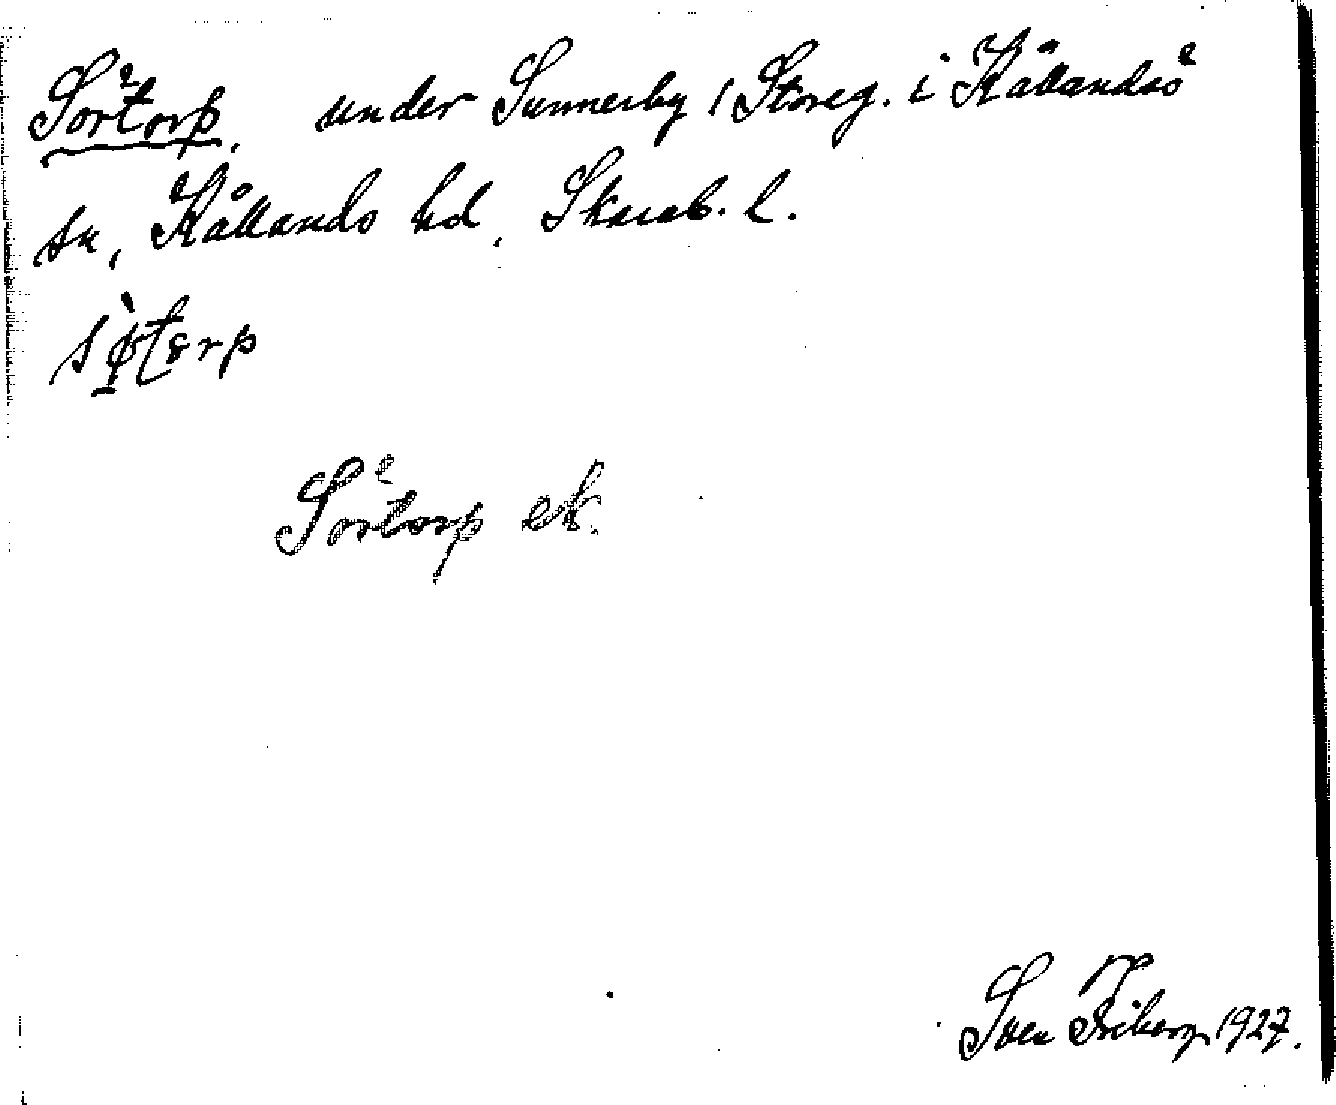 Sörtorp, under Sunnerby (Storeg. i Kållandsö
sn, Kållands hd, Skarab. l.
sø̀tərp
Sörtorp ek.
Sven Friberg 1927.